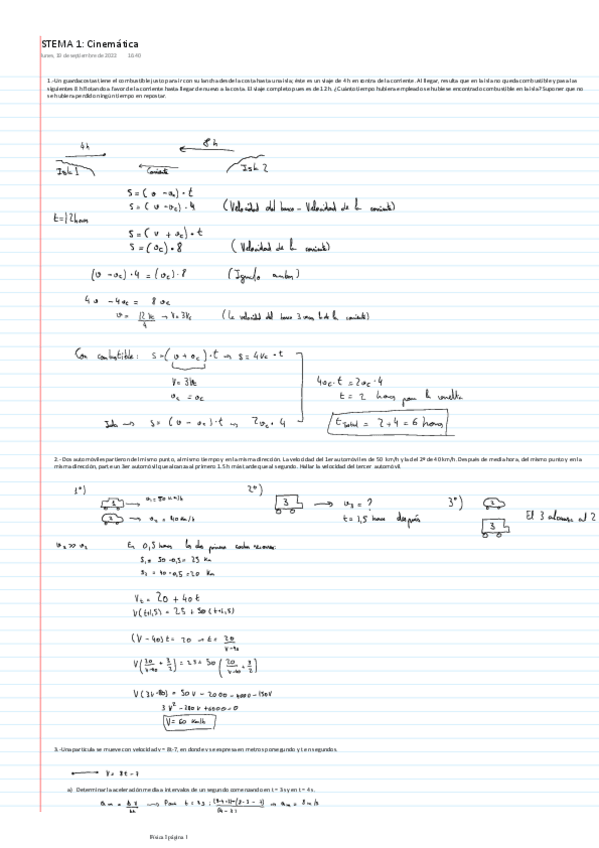 STEMA 1: Cinemática
lunes, 19 de septiembre de 2022 16:40
1.-Un guardacostas tiene el combustible justo para ir con su lancha desde la costa hasta una isla; éste es un viaje de 4 h en contra de la corriente. Al llegar, resulta que en la isla no queda combustible y pasa las
siguientes 8 h flotando a favor de la corriente hasta llegar de nuevo a la costa. El viaje completo pues es de 12 h. ¿Cuánto tiempo hubiera empleado se hubiese encontrado combustible en la isla? Suponer que no
se hubiera perdido ningún tiempo en repostar.
4h 8h
Isla 1 Corriente Isla 2
S = (v - vc) · t
S = (v - vc) · 4 (Velocidad del barco - Velocidad de la corriente)
t=12 horas
S = (v + vc) · t
S = (vc) · 8 (Velocidad de la corriente)
(v - vc) · 4 = (vc) · 8 (Igualo ambas)
4v - 4vc = 8vc
v = 12vc/4 → v = 3vc (La velocidad del barco 3 veces la de la corriente)
Con combustible: S = (v + vc) · t → S = 4vc · t
v = 3vc 4vc · t = 2vc · 4
vc = vc t = 2 horas para la vuelta
Ida → S = (v - vc) · t → 2vc · 4 t total = 2 + 4 = 6 horas
2.-Dos automóviles partieron del mismo punto, al mismo tiempo y en la misma dirección. La velocidad del 1er automóvil es de 50 km/h y la del 2º de 40 km/h. Después de media hora, del mismo punto y en la
misma dirección, parte un 3er automóvil que alcanza al primero 1.5 h más tarde que al segundo. Hallar la velocidad del tercer automóvil.
v₁ = 50 km/h
2º) 3 → v₃ = ? 3º) 3
v₂ = 40 km/h t = 1,5 horas después 3 El 3 alcanza al 2
En 0,5 horas los dos primeros coches recorren:
S₁ = 50 · 0,5 = 25 km
S₂ = 40 · 0,5 = 20 km
Vt = 20 + 40t
V(t+1,5) = 25 + 50(t+1,5)
(V - 40)t = 20 → t = 20/V-40
V(20/V-40 + 3/2) = 25 + 50(20/V-40 + 3/2)
V = 60 km/h
3.-Una partícula se mueve con velocidad v = 8t-7, en donde v se expresa en metros por segundo y t en segundos.
v = 8t - 7
a) Determinar la aceleración media a intervalos de un segundo comenzando en t = 3s y en t = 4s.
Física I página 1